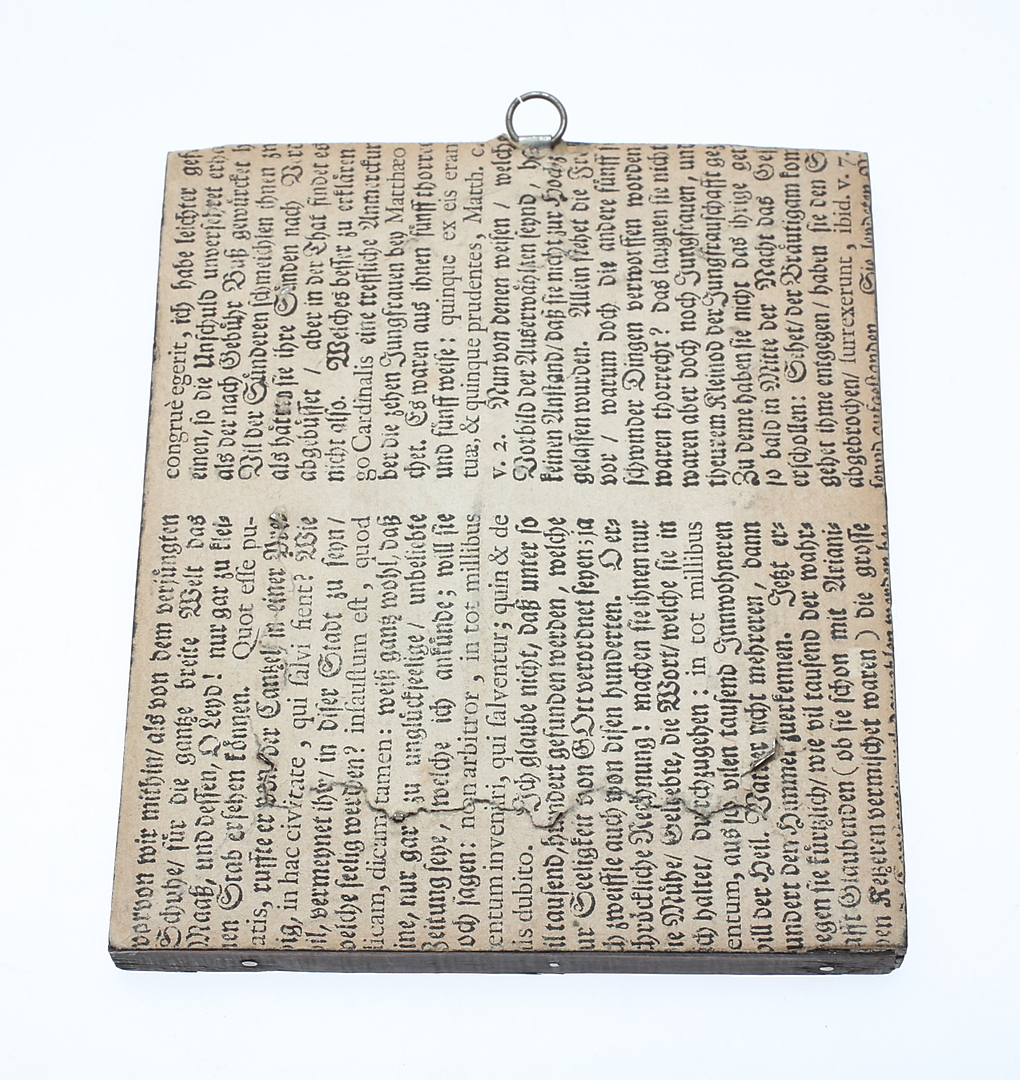 wovon wir mithin/ als von dem verjüngten
Schuhe/ für die gantze breite Welt das
Maaß, und dessen, O Leyd! nur gar zu klei⸗
nen Stab ersehen können. Quot esse pu-
atis, ruffte er von der Cantzel in einer Pre⸗
ig, in hac civitate, qui salvi fient? Wie
il, vermeynet ihr/ in diser Stadt zu seyn/
welche seelig werden? infaustum est, quod
icam, dicam tamen: weiß gantz wohl, daß
ine, nur gar zu unglückseelige/ unbeliebte
Zeitung seye, welche ich ankünde; will sie
och sagen: non arbitror, in tot millibus
entum inveniri, qui salventur; quin & de
is dubito. Ich glaube nicht, daß unter so
il tausend, hundert gefunden werden, welche
ur Seeligkeit von GOtt verordnet seyen: ja
h zweiffle auch von disen hunderten. O er⸗
hröckliche Rechnung! machen sie ihnen nur
ie Mühe/ Geliebte, die Wort/ welche sie in
ch halten/ durchzugehen: in tot millibus
entum, aus so vilen tausend Innwohneren
will der Heil. Vatter nicht mehreren, dann
undert den Himmel zuerkennen. Jetzt er⸗
egen sie kürtzlich/ wie vil tausend der wahr⸗
afft Glaubenden (ob sie schon mit Ariani⸗
en Ketzeren vermischet waren) die grosse
congruè egerit, ich habe leichter gef
einen, so die Unschuld unversehret erh
als der nach Gebühr Buß gewürcket h
Vil der Sünderen schmeichlen ihnen zn
als hätten sie ihre Sünden nach
abgebüsset / aber in der That findet es
nicht also. Welches besser zu erklären
go Cardinalis eine treffliche Anmerckun
ber die zehen Jungfrauen bey Matthæo
chet. Es waren aus ihnen fünff thorre
und fünff weise: quinque ex eis eran
tuæ, & quinque prudentes, Matth. c.
v. 2. Nun von denen weisen / welche
Vorbild der Auserwählten seynd/
keinen Anstand/ daß sie nicht zur Hochz
gelassen wurden. Allein stehet die Fr
vor / warum doch die andere fünff
schwonder Dingen verworffen worden
waren thorrecht? das laugnen sie nicht
waren aber doch noch Jungfrauen, un
theurem Kleinod der Jungfrauschafft gez
Zu deme haben sie nicht das ihrige ge
so bald in Mitte der Nacht das Ges
erschollen: Sehet/ der Bräutigam kom
gehet ihme entgegen/ haben sie den S
abgebrochen/ surrexerunt, ibid. v. 7.
seynd aufgestanden.